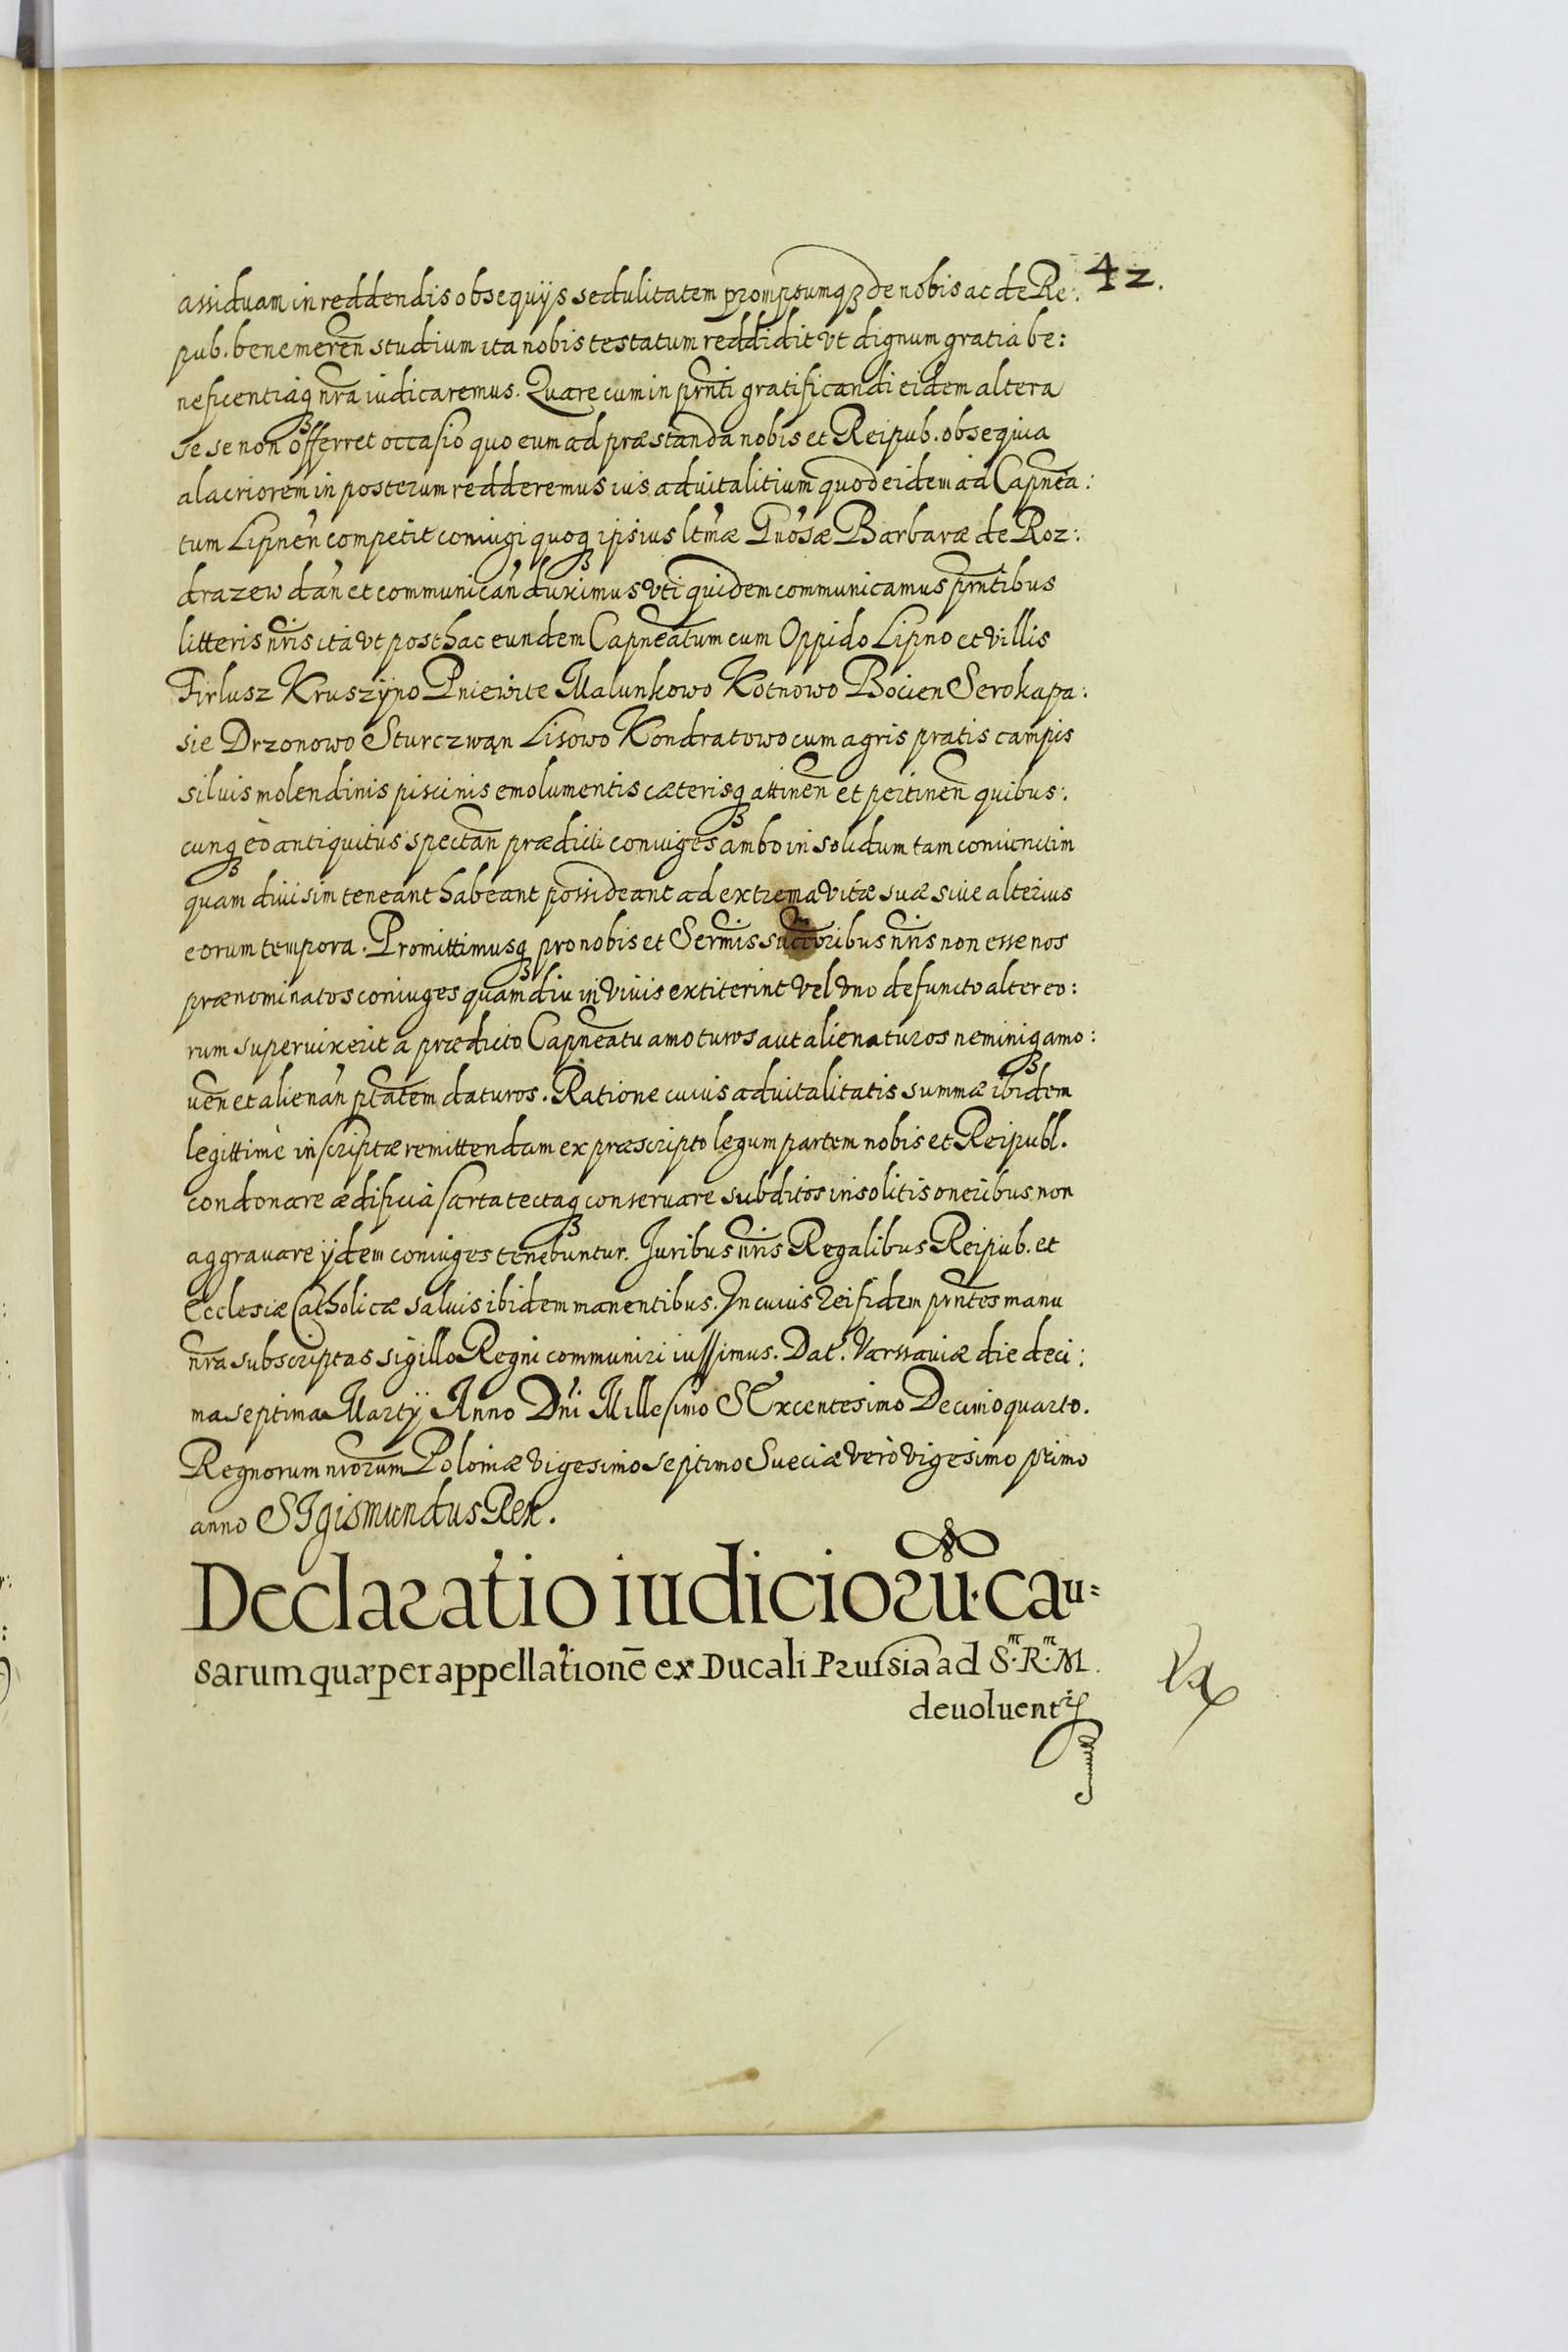 42.
assiduam in reddendis obsequijs sedulitatem promptumqȝ de nobis ac de Re:
pub. benemereñ studium ita nobis testatum reddidit vt dignum gratia be:
neficentiaqȝ nr̃a iudicaremus. Quare cum in prñti gratificandi eidem altera
se se non offerret occasio quo eum ad præstanda nobis et Reipub. obsequia
alacriorem in posterum redderemus ius aduitalitium quod eidem ad Capnea:
tum Lipneñ competit coniugi quoqȝ ipsius ltmæ Gnosæ Barbaræ de Roz:
drazew dañ et communicañ duximus vti quidem communicamus prñtibus
litteris nr̃is ita vt posthac eundem Capneatum cum Oppido Lipno et villis
Firlusz Kruszÿno Pniewite Malunkowo Kotnowo Bocien Serokapa:
sie Drzonowo Sturczwąn Lisowo Kondratowo cum agris pratis campis
siluis molendinis piscinis emolumentis cæterisqȝ attineñ et pertineñ quibus:
cunqȝ eò antiquitus spectañ prædicti coniuges ambo in solidum tam coniunctim
quam diuisim teneant habeant possideant ad extrema vitæ suæ siue alterius
eorum tempora. Promittimusqȝ pro nobis et Sermis succoribus nr̃is non esse nos
prænominatos coniuges quamdiu in viuis extiterint vel vno defuncto alter eo:
rum superuixerit a prædicto Capneatu amoturos aut alienaturos neminiqȝ amo:
ueñ et alienañ ptatem daturos. Ratione cuius aduitalitatis summæ ibidem
legittimè inscriptæ remittendam ex præscripto legum partem nobis et Reipubl.
condonare ædificia sarta tectaqȝ conseruare subditos insolitis oneribus non
aggrauare ijdem coniuges tenebuntur. Juribus nr̃is Regalibus Reipub. et
Ecclesiæ Catholicæ saluis ibidem manentibus. In cuius rei fidem prñtes manu
nr̃a subscriptas sigillo Regni communiri iussimus. Dat. Varssauiæ die deci:
ma septima Martij Anno Dñi Millesimo SExcentesimo Decimoquarto.
Regnorum nrorum Poloniæ vigesimo septimo Sueciæ verò vigesimo primo
anno SIgismundus Rex.
Declaratio iudicioru. cau=
sarum quæ per appellationē ex Ducali Prussia ad S.m R.m M.
deuoluent